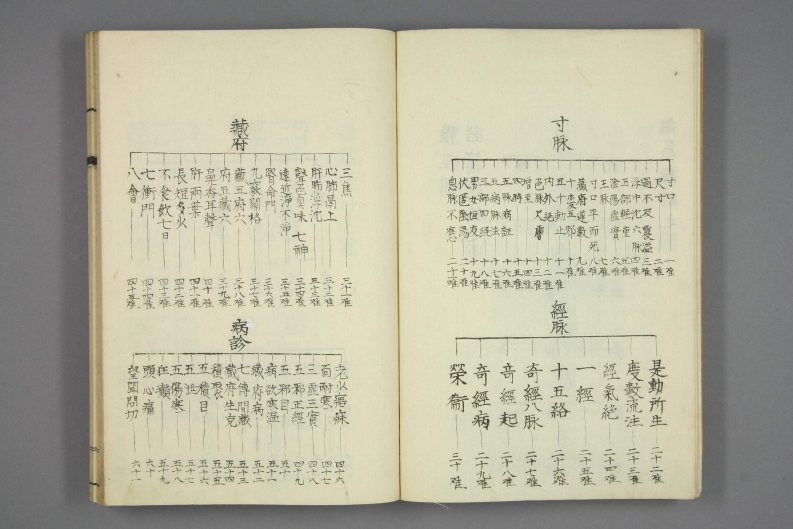 寸脉
寸口 一難
尺寸 二難
過不及覆溢 三難
浮中沈六脉 四難
五部輕重 五難
陰陽虛實 六難
王脉 七難
寸口平而死 八難
藏府遲數 九難
十変五邪 十難
五十動止 十一難
内外絶 十二難
色脉尺膚 十三難
損至 十四難
四時 十五難
五脉病証 十六難
病脉法 十七難
三部四經 十八難
男女恒反 十九難
伏匿陰陽 二十難
息脉不應 二十一難
經脉
是動所生 二十二難
度數流注 二十三難
經氣絶 二十四難
一經 二十五難
十五絡 二十六難
奇經八脉 二十七難
奇經起 二十八難
奇經病 二十九難
榮衞 三十難
藏府
三焦 三十一難
心肺鬲上 三十二難
肝肺浮沈 三十三難
聲色臭味七神 三十四難
遠近淨不淨 三十五難
腎命門 三十六難
九竅關格 三十七難
藏五府六 三十八難
府五藏六 三十九難
鼻香耳聲 四十難
肝両葉 四十一難
長短多少 四十二難
不食飲七日 四十三難
七衝門 四十四難
八會 四十五難
病診
老少寤寐 四十六
面耐寒 四十七
三虛三實 四十八
五邪正經 四十九
五邪目 五十
病欲寒温 五十一
藏府病 五十二
七傳間藏 五十三
藏府生克 五十四
積聚 五十五
五積目 五十六
五泄 五十七
五傷寒 五十八
狂癲 五十九
頭心痛 六十
望聞問切 六十一